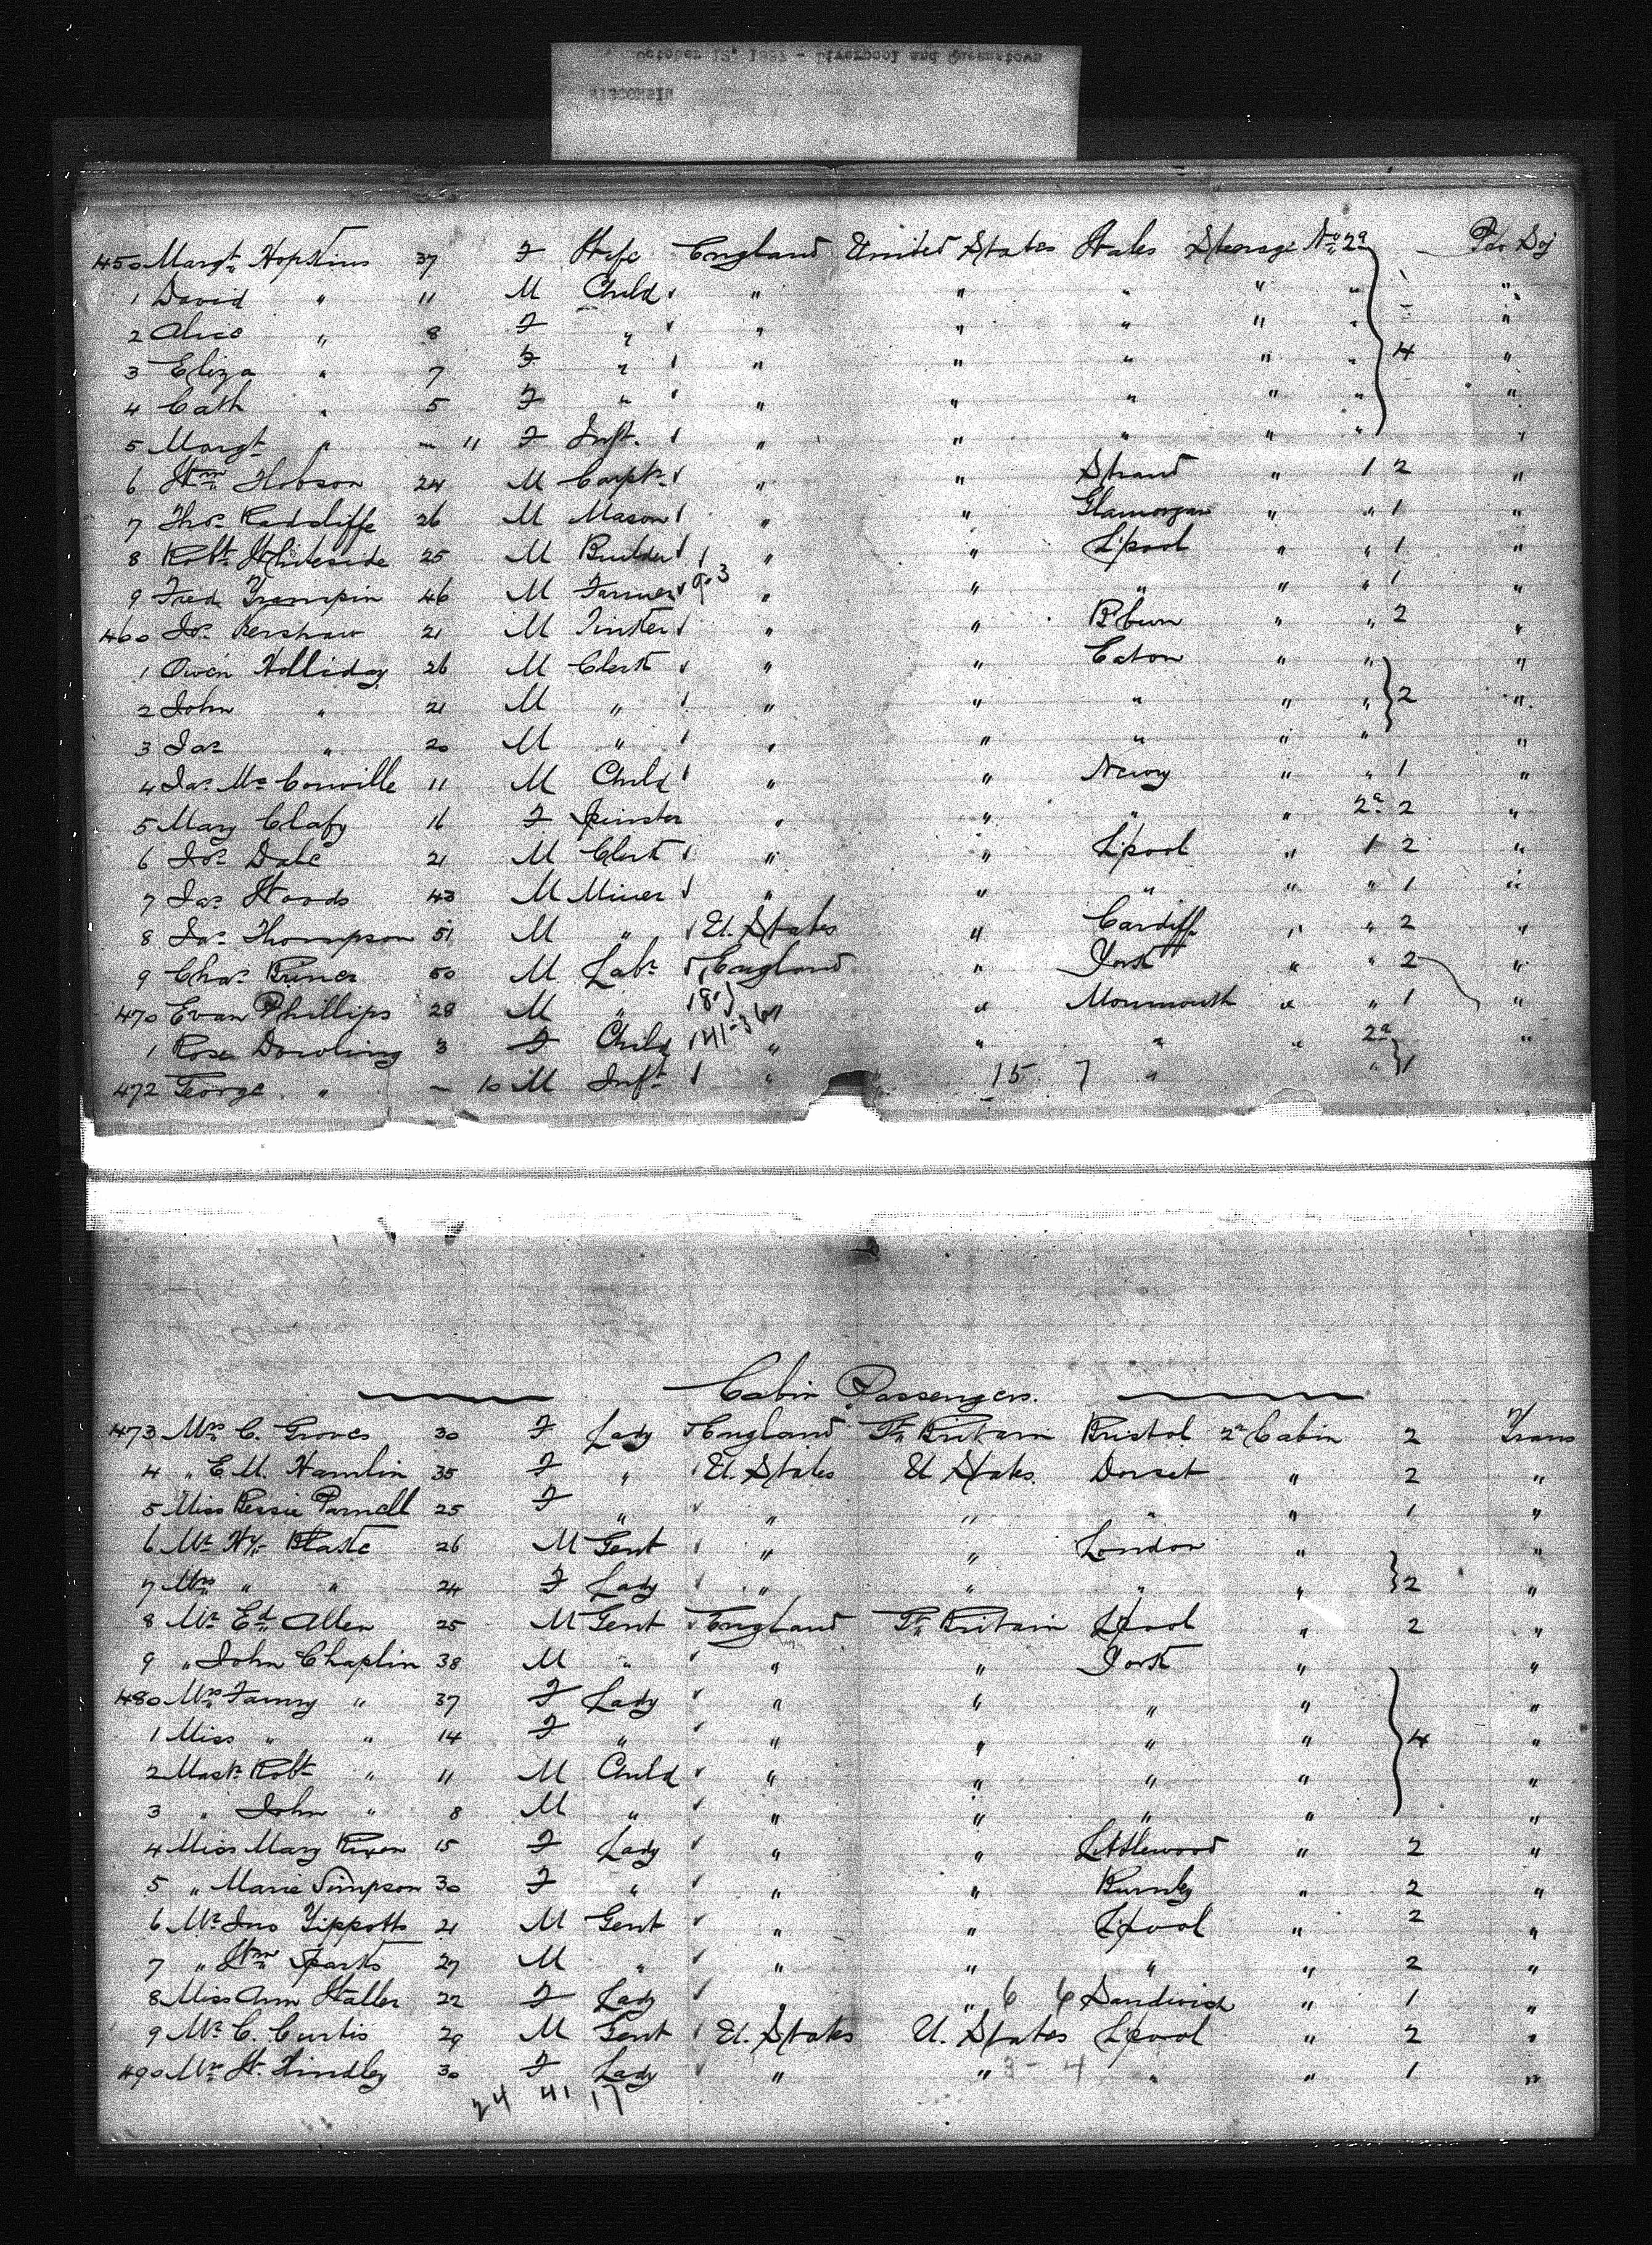 October 12, 1887 - Liverpool and Queenstown
WISCONSIN
450 Margt Hopkins 37 F Wife England United States Wales Steerage No 2a Pro Soj
1 David " 11 M Child " " " " " "
2 Alice " 8 F " " " " " " "
3 Eliza " 7 F " " " " " " 4 "
4 Cath " 5 F " " " " " " "
5 Margt " - 11 F Inft. " " " " " "
6 Wm Hobson 24 M Carptr " " Strand " 1 2 "
7 Thos Radcliffe 26 M Mason " " Glamorgan " " 1 "
8 Robt Whiteside 25 M Builder " " L'pool " " 1 "
9 Fred 46 M Farmer " " " " " 1 "
460 Jos Kershaw 21 M " " B'burn " " 2 "
1 Owen Holliday 26 M Clerk " " Eaton " " "
2 John " 21 M " " " " " " 2 "
3 Jas " 20 M " " " " " " "
4 Jas McConville 11 M Child " " Newry " " 1 "
5 Mary Clafy 16 F Spinster " " " " 2a 2 "
6 Jos Dale 21 M Clerk " " L'pool " 1 2 "
7 Jas Woods 43 M Miner " " " " " 1 "
8 Jas Thompson 51 M " U. States " Cardiff " " 2 "
9 Chas 50 M Labr England " York " " 2 "
470 Evan Phillips 28 M " " " Monmouth " " 1 "
1 Rose Dowling 3 F Child " " " " 2a "
472 George " - 10 M Inft " 15 7 " " 1
Cabin Passengers.
473 Mrs C. Groves 30 F Lady England Gt Britain Bristol 2d Cabin 2 Trans
4 " E M. Hamlin 35 F " U. States U States Dorset " 2 "
5 Miss Bessie Parnell 25 F " " " " " 1 "
6 Mr Hy Blake 26 M Gent " " London " "
7 Mrs " " 24 F Lady " " " " 2 "
8 Mr Ed Allen 25 M Gent England Gt Britain L'pool " 2 "
9 " John Chaplin 38 M " " " York " "
480 Mrs Fanny " 37 F Lady " " " " "
1 Miss " " 14 F " " " " " 4 "
2 Mastr Robt " 11 M Child " " " " "
3 " John " 8 M " " " " " "
4 Miss Mary 15 F Lady " " Littlewood " 2 "
5 " Marie Simpson 30 F " " " Burnley " 2 "
6 Mr Jno Tippotts 21 M Gent " " L'pool " 2 "
7 " Wm Sparks 27 M " " " " " 2 "
8 Miss Ann Waller 22 F Lady " " 6 6 Sandwich " 1 "
9 Mr C. Curtis 29 M Gent U. States U. States L'pool " 2 "
490 Mrs H. Hindley 30 F Lady " " 3-4 " " 1 "
24 41 17